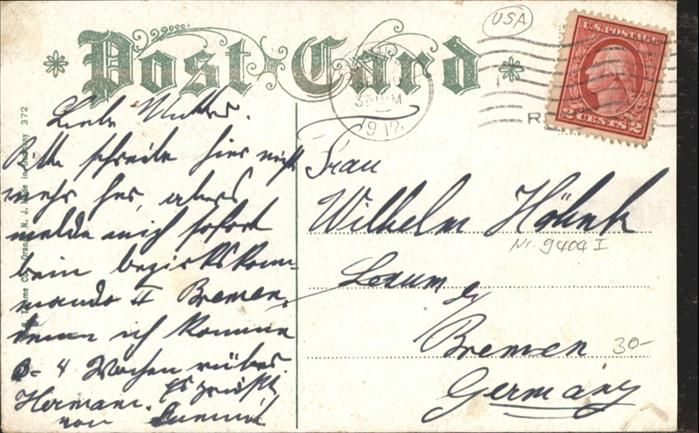 Post Card
USA
U.S. POSTAGE
2 CENTS 2
3 PM
1912
Liebe Mutter.
Bitte schreibe hier nicht
mehr her, aber
melde mich sofort
beim bezirkskom-
mando II Bremen,
denn ich komme
3-4 Wochen rüber.
Hermann. Es grüßt
von
Frau
Wilhelm Höhnk
Nr. 9404 I
Lesum b/
Bremen
30-
Germany
372